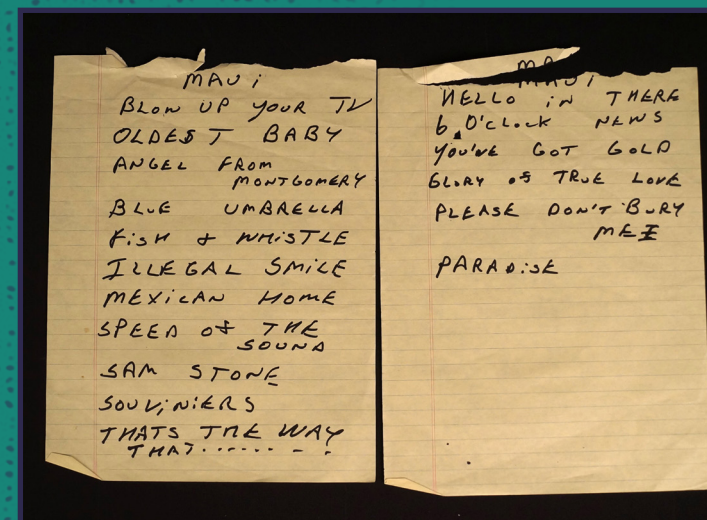 MAUi
BLOW UP YOUR TV
OLDEST BABY
ANGEL FROM
MONTGOMERY
BLUE UMBRELLA
FiSH & WHiSTLE
ILLEGAL SMiLE
MEXiCAN HOME
SPEED OF THE
SOUND
SAM STONE
SOUViNiERS
THATS THE WAY
THAT..........
MAUi
HELLO iN THERE
6 O'CLOCK NEWS
YOU'VE GOT GOLD
GLORY OF TRUE LOVE
PLEASE DON'T BURY
ME
PARADiSE